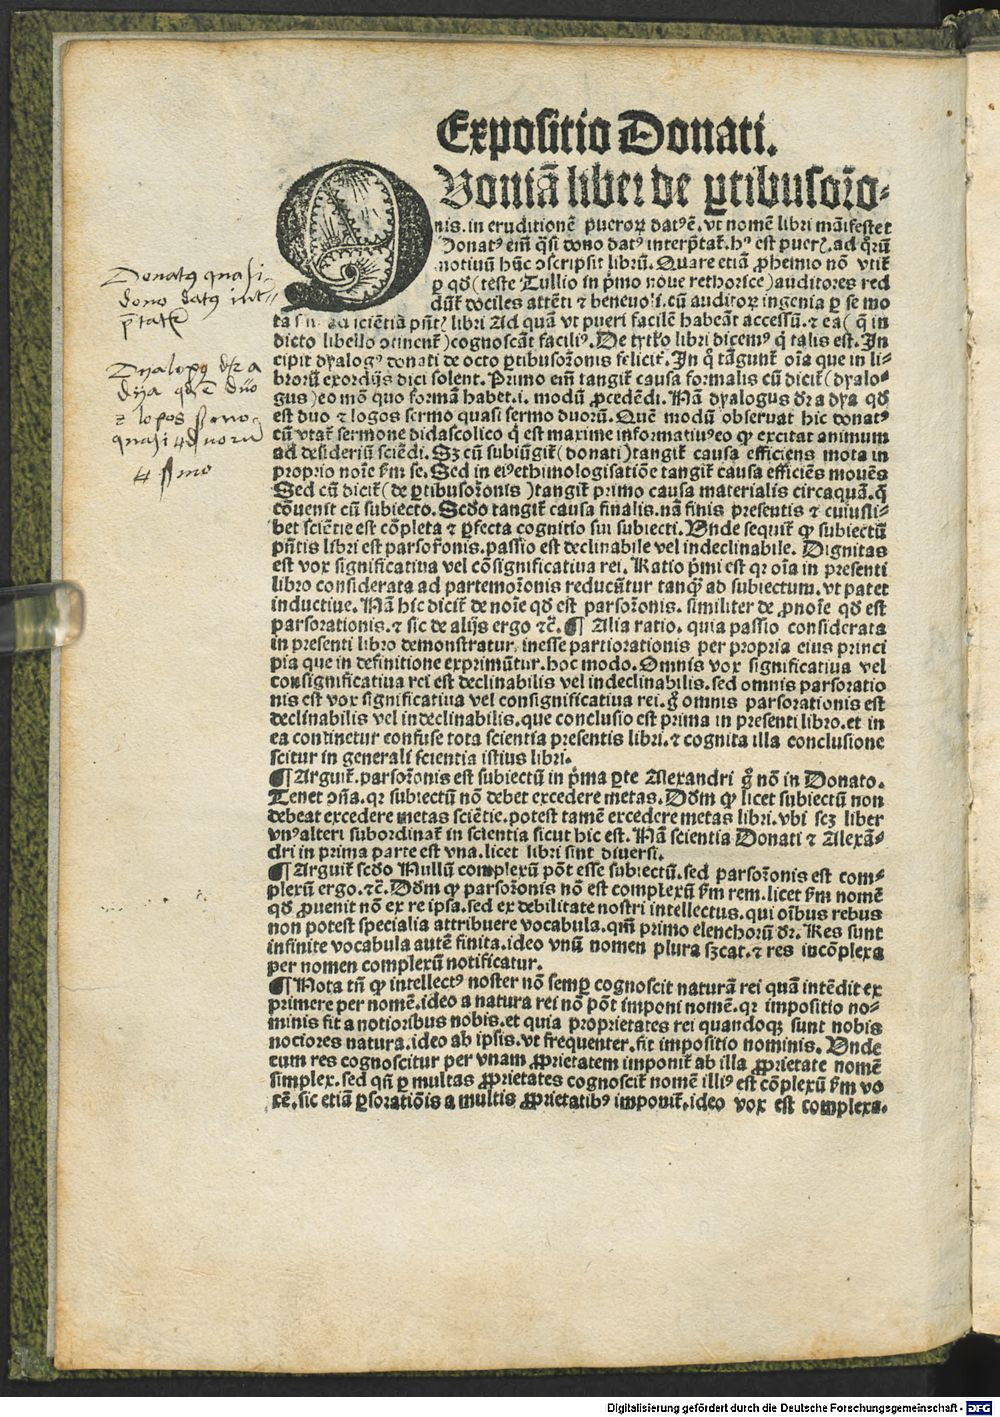 Expositio Donati.
Quoniā liber de ꝑtibusor̄o-
nis. in eruditionē pueroꝝ datꝰē. vt nomē libri māifestet
Donatꝰ em̄ q̄si dono datꝰ interp̄tat᷑. hꝰ est puer᷑. ad qr̄ū
motiuū hūc ↄscripsit librū. Quare etiā ꝓhemio nō vtit᷑
ꝑ qd̄ (teste Tullio in p̄mo noue rethorice) auditores red
dūt᷑ dociles attēti ⁊ beneuoli. cū auditoꝝ ingenia ꝑ se mo
ad sciētiā pn̄t᷑ libri Ad quā vt pueri facilē habeāt accessū. ⁊ ea (q̄ in
dicto libello ↄtinent᷑) cognoscāt faciliꝰ. De tytło libri dicemꝰ q̄ talis est. In
cipit dyalogꝰ donati de octo ꝑtibusor̄onis felicit᷑. In q̄ tāgunt᷑ oīa que in li-
brorū exordijs dici solent. Primo em̄ tangit᷑ causa formalis cū dicit᷑ (dyalo-
gus) eo mō quo formā habet. i. modū ꝓcedēdi. Nā dyalogus dr̄ a dya qd̄
est duo ⁊ logos sermo quasi sermo duorū. Quē modū obseruat hic donatꝰ
cū vtat᷑ sermone didascolico q̄ est maxime informatiuꝰ eo ꝙ excitat animum
ad desideriū sciēdi. Sꝫ cū subiūgit᷑ (donati) tangit᷑ causa efficiens mota in
proprio noīe ẜm se. Sed in eiꝰ ethimologisatiōe tangit᷑ causa efficiēs mouēs
Sed cū dicit᷑ (de ꝑtibusor̄onis) tangit᷑ primo causa materialis circaquā. q̄
cōuenit cū subiecto. Scd̄o tangit᷑ causa finalis. nā finis presentis ⁊ cuiusli-
bet sciētie est cōpleta ⁊ ꝑfecta cognitio sui subiecti. Vnde sequit᷑ ꝙ subiectū
pn̄tis libri est parsor̄onis. passio est declinabile vel indeclinabile. Dignitas
est vox significatiua vel cōsignificatiua rei. Ratio p̄mi est qꝛ oīa in presenti
libro considerata ad partemor̄onis reducūtur tanq̄ ad subiectum. vt patet
inductiue. Nā hic dicit᷑ de noīe qd̄ est parsor̄onis. similiter de ꝓnoīe qd̄ est
parsorationis. ⁊ sic de alijs ergo ⁊c̄. ¶ Alia ratio. quia passio considerata
in presenti libro demonstratur inesse partiorationis per propria eius princi
pia que in definitione exprimūtur. hoc modo. Omnis vox significatiua vel
consignificatiua rei est declinabilis vel indeclinabilis. sed omnis parsoratio
nis est vox significatiua vel consignificatiua rei. g̊ omnis parsorationis est
declinabilis vel indeclinabilis. que conclusio est prima in presenti libro. et in
ea continetur confuse tota scientia presentis libri. ⁊ cognita illa conclusione
scitur in generali scientia istius libri.
¶ Arguit᷑. parsor̄onis est subiectū in p̄ma ꝑte Alexandri g̊ nō in Donato.
Tenet ↄn̄a. qꝛ subiectū nō debet excedere metas. Dd̄m ꝙ licet subiectū non
debeat excedere metas sciētie. potest tamē excedere metas libri. vbi scꝫ liber
vnꝰ alteri subordinat᷑ in scientia sicut hic est. Nā scientia Donati ⁊ Alexā-
dri in prima parte est vna. licet libri sint diuersi.
¶ Arguit᷑ scd̄o Nullū complexū pōt esse subiectū. sed parsor̄onis est com-
plexū ergo. ⁊c̄. Dd̄m ꝙ parsor̄onis nō est complexū ẜm rem. licet ẜm nomē
qd̄ ꝓuenit nō ex re ipsa. sed ex debilitate nostri intellectus. qui oībus rebus
non potest specialia attribuere vocabula. qm̄ primo elenchorū dr̄. Res sunt
infinite vocabula autē finita. ideo vnū nomen plura sꝫcat. ⁊ res incōplexa
per nomen complexū notificatur.
¶ Nota tn̄ ꝙ intellectꝰ noster nō semꝑ cognoscit naturā rei quā intēdit ex
primere per nomē. ideo a natura rei nō pōt imponi nomē. qꝛ impositio no-
minis fit a notioribus nobis. et quia proprietates rei quandoqꝫ sunt nobis
notiores natura. ideo ab ipsis. vt frequenter. fit impositio nominis. Vnde
cum res cognoscitur per vnam ꝓprietatem imponit᷑ ab illa ꝓprietate nomē
simplex. sed qn̄ ꝑ multas ꝓprietates cognoscit᷑ nomē illiꝰ est cōplexū ẜm vo
cē. sic etiā ꝑsoratiōis a multis ꝓprietatibꝰ imponit᷑. ideo vox est complexa.
Donatꝰ quasi
dono datꝰ int-
p̄tatr̄
Dyalogꝰ dr̄ a
dya qd̄ ē duo
⁊ logos sermo
quasi duorū
sermo
Digitalisierung gefördert durch die Deutsche Forschungsgemeinschaft - DFG